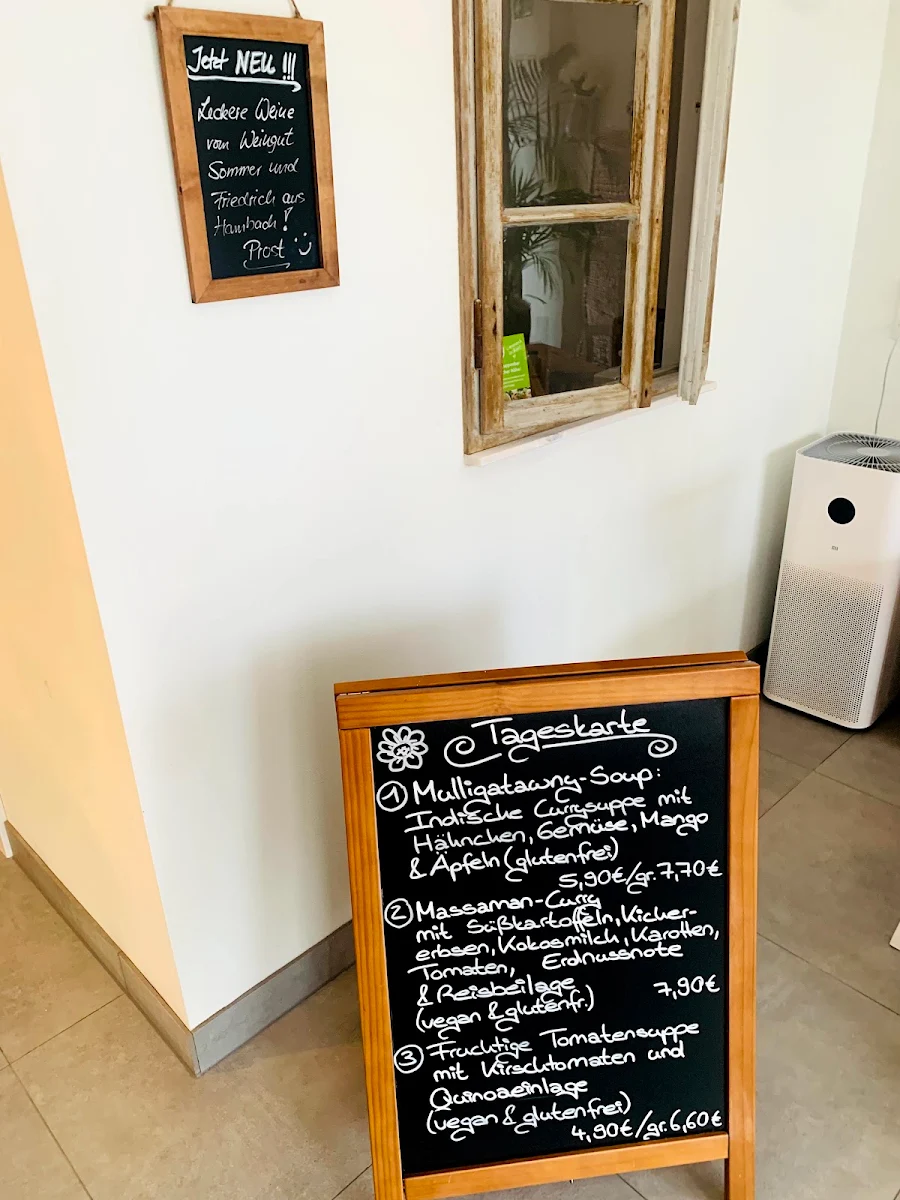 Jetzt NEU !!!
Leckere Weine
vom Weingut
Sommer und
Friedrich aus
Hambach!
Prost :)
Tageskarte
1 Mulligatawny-Soup:
Indische Currysuppe mit
Hähnchen, Gemüse, Mango
& Äpfeln (glutenfrei)
5,90€/gr.7,70€
2 Massaman-Curry
mit Süßkartoffeln, Kicher-
erbsen, Kokosmilch, Karotten,
Tomaten, Erdnussnote
& Reisbeilage 7,90€
(vegan & glutenfr.)
3 Fruchtige Tomatensuppe
mit Kirschtomaten und
Quinoaeinlage
(vegan & glutenfrei)
4,90€/gr.6,60€